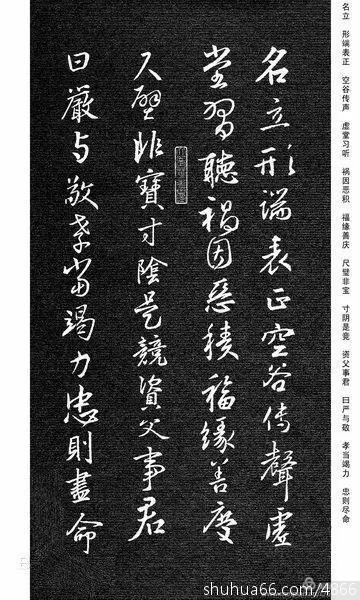 名立形端表正空谷传聲虚
堂習聽禍因惡積福緣善慶
尺璧非寶寸陰是競資父事君
曰嚴与敬孝當竭力忠則盡命
名立 形端表正 空谷传声 虚堂习听 祸因恶积 福缘善庆 尺璧非宝 寸阴是竞 资父事君 曰严与敬 孝当竭力 忠则尽命
shuhua66.com/4866